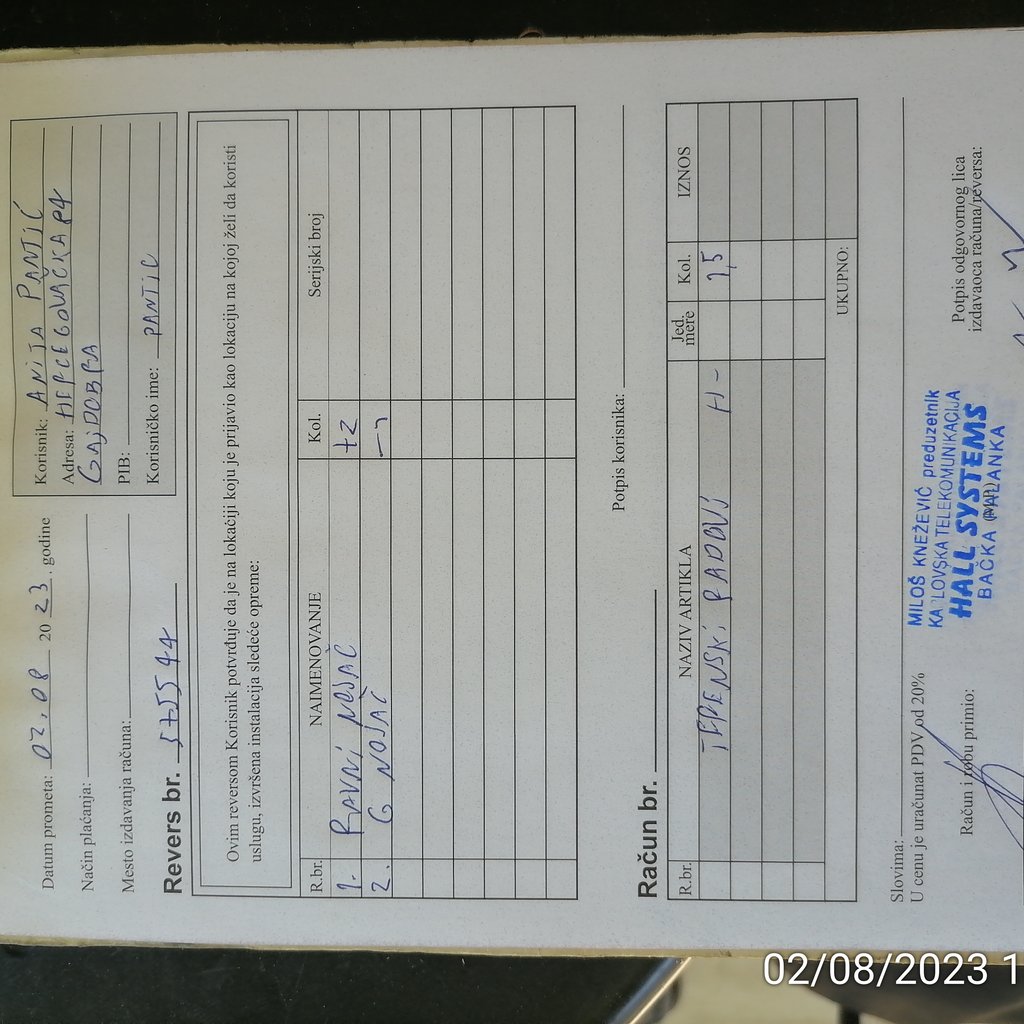 Datum prometa: 02.08 2023. godine
Način plaćanja:
Mesto izdavanja računa:
Korisnik: ANIJA PANTIĆ
Adresa: HERCEGOVAČKA 84
GAJDOBRA
PIB:
Korisničko ime: PANTIC
Revers br.
Ovim reversom Korisnik potvrđuje da je na lokaciji koju je prijavio kao lokaciju na kojoj želi da koristi
uslugu, izvršena instalacija sledeće opreme:
R.br. NAIMENOVANJE Kol. Serijski broj
1. RAVNI NOSAČ +2
2. G NOSAČ
Potpis korisnika:
Račun br.
R.br. NAZIV ARTIKLA Jed. mere Kol. IZNOS
TERENSKI RADOVI H-
UKUPNO:
Slovima:
U cenu je uračunat PDV od 20%
Račun i robu primio:
MILOŠ KNEŽEVIĆ preduzetnik
KABLOVSKA TELEKOMUNIKACIJA
HALL SYSTEMS
BAČKA PALANKA
(M.P.)
Potpis odgovornog lica
izdavaoca računa/reversa:
02/08/2023 1